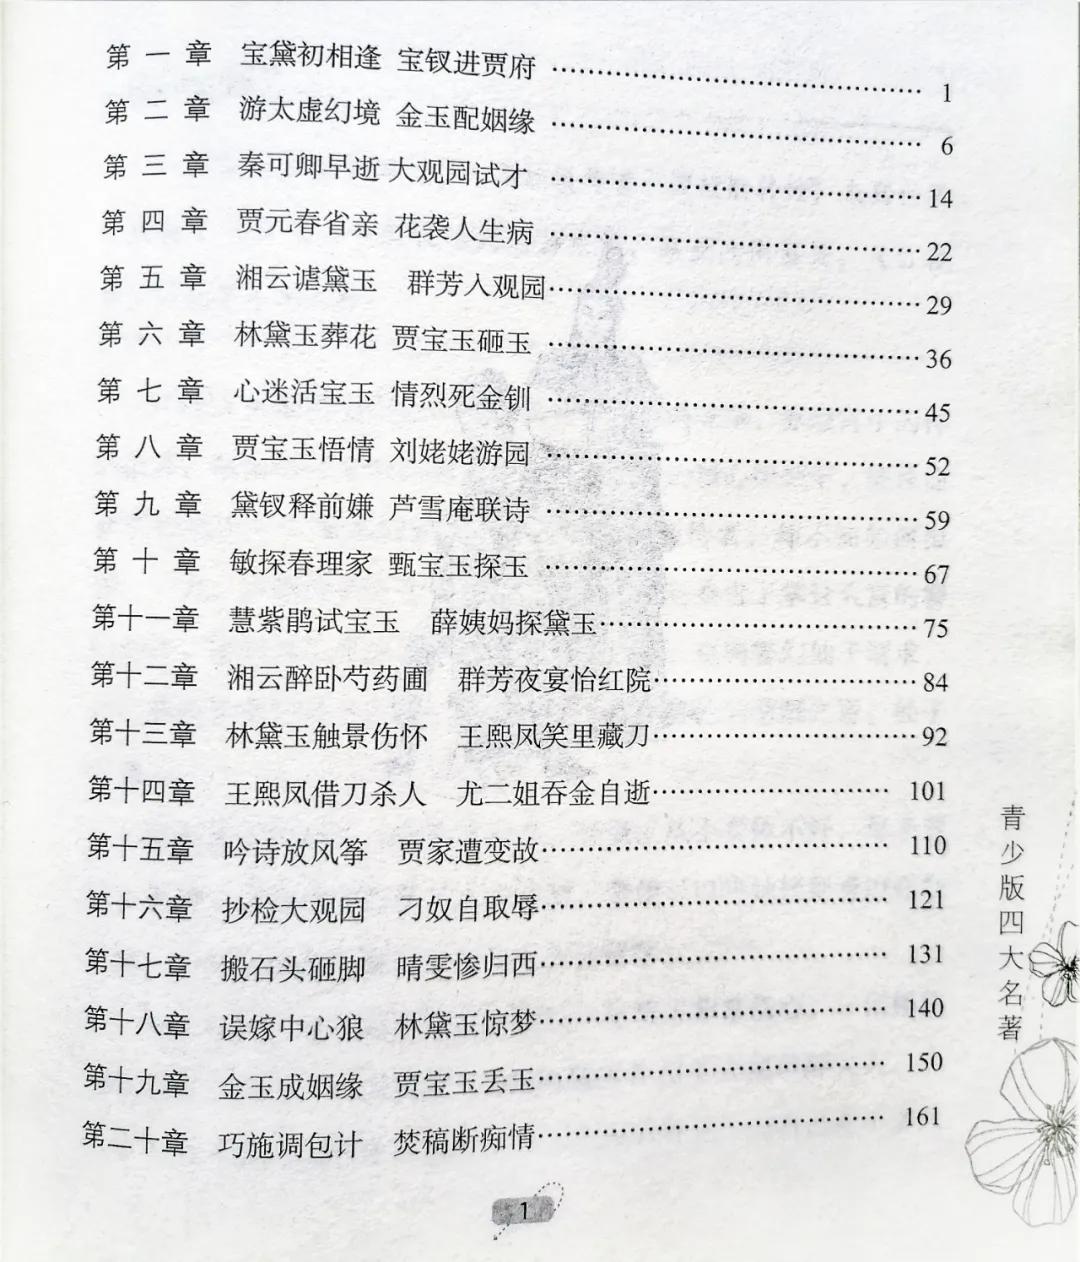 第一章 宝黛初相逢 宝钗进贾府 …… 1
第二章 游太虚幻境 金玉配姻缘 …… 6
第三章 秦可卿早逝 大观园试才 …… 14
第四章 贾元春省亲 花袭人生病 …… 22
第五章 湘云谑黛玉 群芳入观园 …… 29
第六章 林黛玉葬花 贾宝玉砸玉 …… 36
第七章 心迷活宝玉 情烈死金钏 …… 45
第八章 贾宝玉悟情 刘姥姥游园 …… 52
第九章 黛钗释前嫌 芦雪庵联诗 …… 59
第十章 敏探春理家 甄宝玉探玉 …… 67
第十一章 慧紫鹃试宝玉 薛姨妈探黛玉 …… 75
第十二章 湘云醉卧芍药圃 群芳夜宴怡红院 …… 84
第十三章 林黛玉触景伤怀 王熙凤笑里藏刀 …… 92
第十四章 王熙凤借刀杀人 尤二姐吞金自逝 …… 101
第十五章 吟诗放风筝 贾家遭变故 …… 110
第十六章 抄检大观园 刁奴自取辱 …… 121
第十七章 搬石头砸脚 晴雯惨归西 …… 131
第十八章 误嫁中心狼 林黛玉惊梦 …… 140
第十九章 金玉成姻缘 贾宝玉丢玉 …… 150
第二十章 巧施调包计 焚稿断痴情 …… 161
青少版四大名著
1